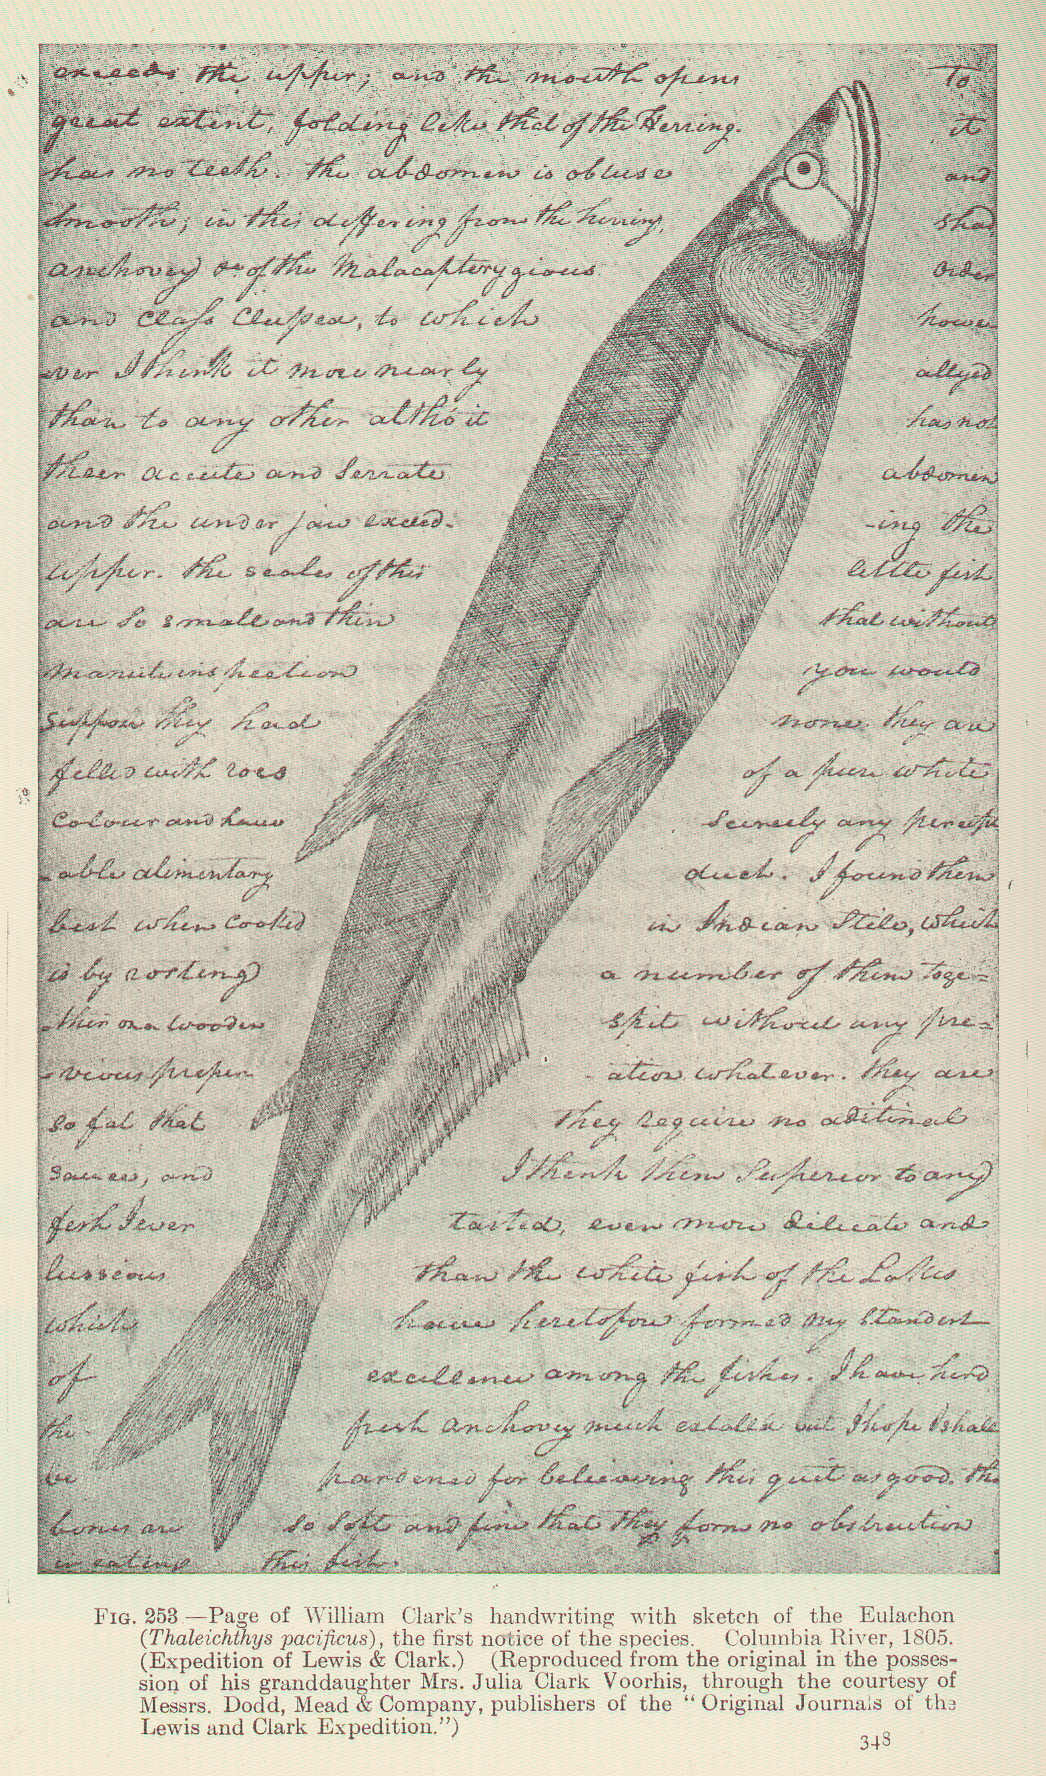 exceeds the upper; and the mouth opens to
great extent, folding like that of the Herring. it
has no teeth. the abdomen is obtuse and
smooth; in this differing from the herring, shad
anchovey &c of the Malacapterygious Order
and Class Clupea, to which howe-
ver I think it more nearly allyed
than to any other altho' it has not
their accute and Serrate abdomen
and the under jaw exceed- -ing the
upper. the scales of this little fish
are So small and thin that without
manute inspection you would
Suppose they had none. they are
filled with roes of a pure white
Colour and have Scercely any percept
-able alimentary duct. I found them
best when Cooked in Indian Stile, which
is by rosting a number of them toge=
-ther on a wooden spit without any pre=
-vious preper- -ation whatever. they are
so fat that they require no aditinal
sauce, and I think them Superior to any
fish I ever tasted, even more dilicate and
lussious than the white fish of the Lakes
which have heretofore formed my Standert
of excellence among the fishes. I have herd
the fresh anchovey much extolld but I hope I shall
be pardened for believing this quit as good. the
bones are So Soft and fine that they form no obstruction
in eating this fish.
FIG. 253 —Page of William Clark's handwriting with sketch of the Eulachon
(Thaleichthys pacificus), the first notice of the species. Columbia River, 1805.
(Expedition of Lewis & Clark.) (Reproduced from the original in the posses-
sion of his granddaughter Mrs. Julia Clark Voorhis, through the courtesy of
Messrs. Dodd, Mead & Company, publishers of the "Original Journals of the
Lewis and Clark Expedition.")
348